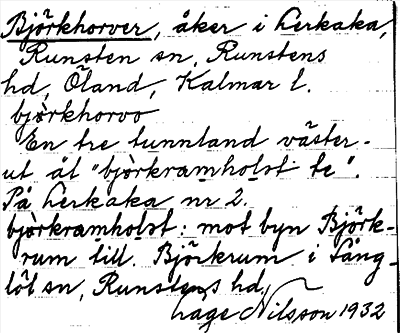 Björkhorver, åker i Lerkaka,
Runsten sn, Runstens
hd, Öland, Kalmar l.
bjòrkhorvo
En tre tunnland väster-
ut åt "bjòrkramholst te".
På Lerkaka nr 2.
bjòrkramholst: mot byn Björk-
rum till. Björkrum i Lång-
löt sn, Runstens hd,
Lage Nilsson 1932